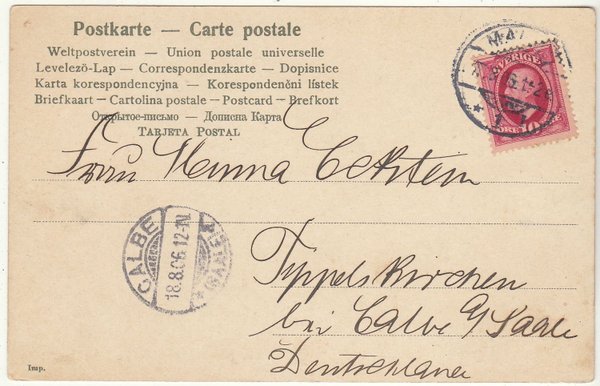 Postkarte — Carte postale
Weltpostverein — Union postale universelle
Levelező-Lap — Correspondenzkarte — Dopisnice
Karta korespondencyjna — Korespondenčni lístek
Briefkaart — Cartolina postale — Postcard — Brefkort
Открытое-письмо — Дописна Карта
TARJETA POSTAL
SVERIGE
10
Frau Minna Eckstein
CALBE
18.8.06.12-1N.
* (SAALE) *
Tippelskirchen
bei Calbe a/Saale
Deutschland
Imp.